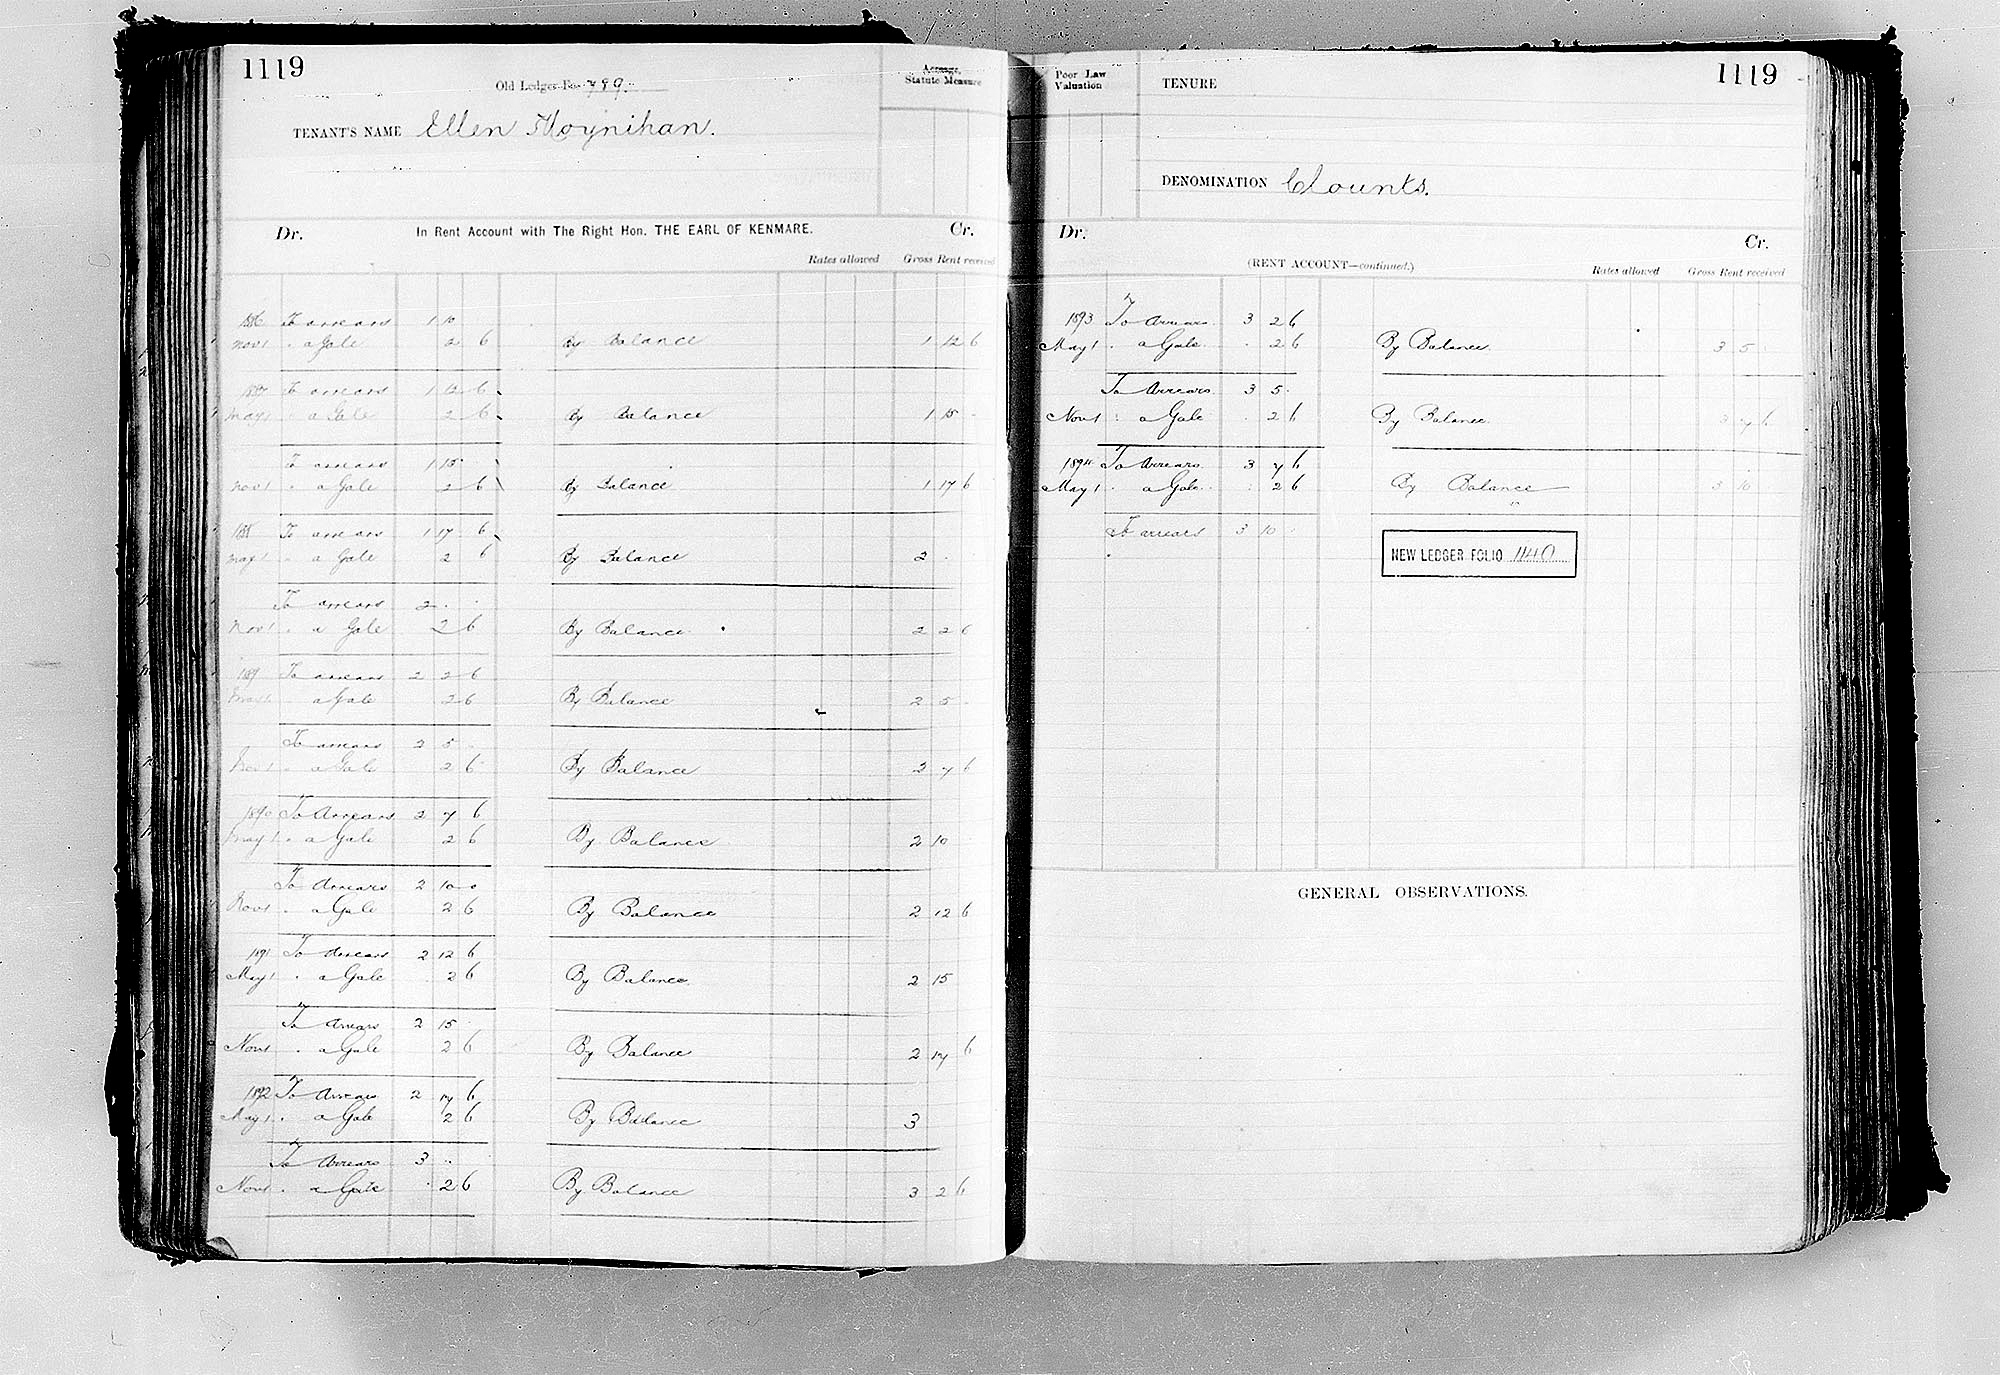 1119
Old Ledger Fo. 789.
TENANT'S NAME Ellen Moynihan.
Acreage,
Statute Measure
Dr. In Rent Account with The Right Hon. THE EARL OF KENMARE. Cr.
Rates allowed Gross Rent received
1886 To arrears 1 10
Nov 1 " a Gale 2 6 By Balance 1 12 6
1887 To arrears 1 12 6
May 1 " a Gale 2 6 By Balance 1 15 -
To arrears 1 15
Nov 1 " a Gale 2 6 By Balance 1 17 6
1888 To arrears 1 17 6
May 1 " a Gale 2 6 By Balance 2 -
To arrears 2 . .
Nov 1 " a Gale 2 6 By Balance 2 2 6
1889 To arrears 2 2 6
May 1 a Gale 2 6 By Balance 2 5 -
To arrears 2 5 .
Nov 1 " a Gale 2 6 By Balance 2 7 6
1890 To Arrears 2 7 6
May 1 " a Gale 2 6 By Balance 2 10
To Arrears 2 10 0
Nov 1 " a Gale 2 6 By Balance 2 12 6
1891 To Arrears 2 12 6
May 1 " a Gale 2 6 By Balance 2 15
To Arrears 2 15
Nov 1 " a Gale 2 6 By Balance 2 17 6
1892 To Arrears 2 17 6
May 1 " a Gale 2 6 By Balance 3
To Arrears 3 . .
Nov 1 " a Gale 2 6 By Balance 3 2 6
1119
Poor Law
Valuation
TENURE
DENOMINATION Clounts.
Dr. Cr.
(RENT ACCOUNT—continued.)
Rates allowed Gross Rent received
1893 To Arrears 3 2 6
May 1 " a Gale 2 6 By Balance 3 5
To Arrears 3 5 .
Nov 1 " a Gale 2 6 By Balance 3 7 6
1894 To Arrears 3 7 6
May 1 " a Gale 2 6 By Balance 3 10
To arrears 3 10 .
NEW LEDGER FOLIO 1140
GENERAL OBSERVATIONS.